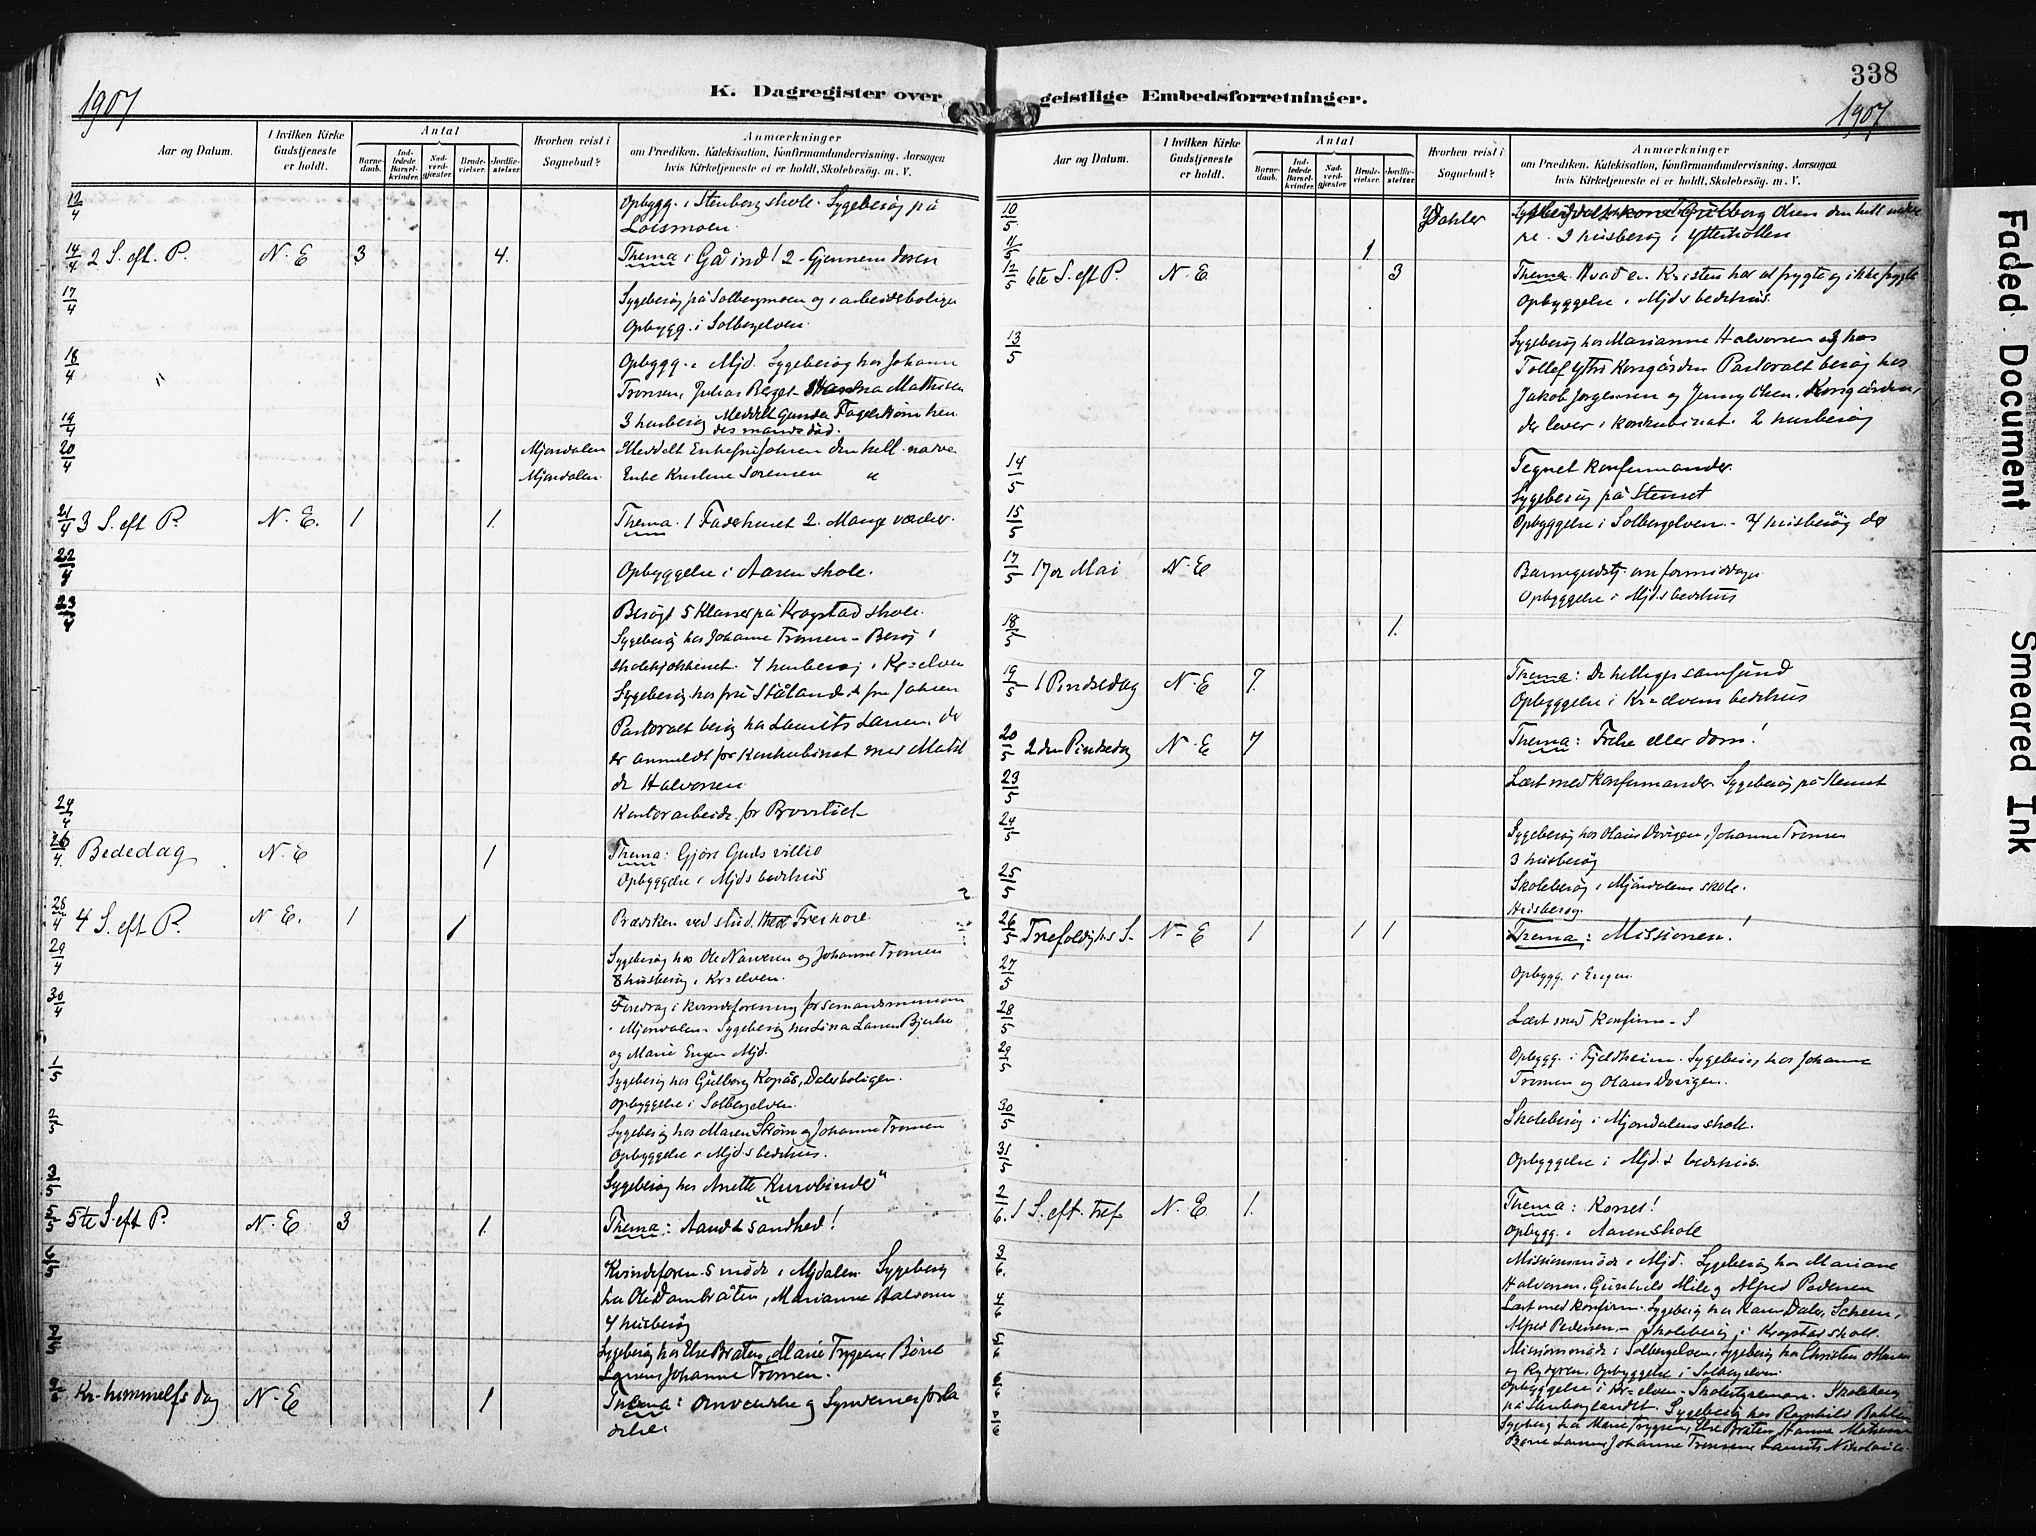 338
1907
K. Dagregister over geistlige Embedsforretninger.
1907
Aar og Datum.
I hvilken Kirke Gudstjeneste er holdt.
Antal
Barnedaab.
Indledede Barselkvinder.
Nadverdgjæster.
Brudevielser.
Jordfæstelser.
Hvorhen reist i Sognebud?
Anmærkninger
om Prædiken, Katekisation, Konfirmandundervisning, Aarsagen
hvis Kirketjeneste ei er holdt, Skolebesøg. m. V.
12/4 Opbygg. i Stenberg skole. Sygebesøg på
Loesmoen.
14/4 2 S. eft. P. N. E 3 4. Thema: Gå ind! 2 Gjennem døren
17/4 Sygebesøg på Solbergmoen og i arbeiderboliger
Opbygg. i Solbergelven.
18/4 Opbygg. i Mjd. Sygebesøg hos Johanne
Tronsen, Julius Berget Mathisen
19/4 3 husbesøg Meddelt Gunda Fagerstrøm hen
des mands död.
20/4 Mjøndalen Meddelt Enkefru Johnsen den hell. nadve
Mjøndalen Enke Kristine Sørensen "
21/4 3 S. eft P. N. E. 1 1. Thema. 1 Faderhuset 2. Mange værelser.
22/4 Opbyggelse i Aasen skole.
23/4 Besøgt 5 Klasser på Krogstad skole.
Sygebesøg hos Johanne Tronsen - Besøg i
skolekjøkkenet. 4 husbesøg i Kr-elven
Sygebesøg hos fru Ståland & fru Jahren
Pastoralt besøg hos Laurits Larsen, der
er anmeldt for Konkubinat med Matil
de Halvorsen
24/4 Kontorarbeide for Provstiet
26/4 Bededag N. E 1 Thema: Gjøre Guds villie
Opbyggelse i Mjds bedehus
28/4 4 S. eft P. N. E. 1 1 Prædiken ved stud. theol
29/4 Sygebesøg hos Ole Narvesen og Johanne Tronsen
8 husbesøg i Kr-elven.
30/4 Foredrag i kvindeforening for sømandsmission
i Mjøndalen - Sygebesøg hos Lina Larsen Bjerke
og Marie Engen Mjd.
1/5 Sygebesøg hos Gülborg Kopås, Dalerboligen.
Opbyggelse i Solbergelven
2/5 Sygebesøg hos Maren Skòm og Johanne Tronsen
Opbyggelse i Mjd.s bedehus.
3/5 Sygebesøg hos Anette "Kurvbinder"
5/5 5te S eft P. N. E 3 1. Thema: Aand & sandhed!
6/5 Kvindeforen.s møde i Mjdalen Sygebesøg
hos Ole Dambråten, Marianne Halvorsen
4 husbesøg
7/5 Sygebesøg hos Else Bråten, Marie Trygesen, Børre
Larsen, Johanne Tronsen.
9/5 Kr. himmelfs dag N. E 1 Thema: Omvendelse og Syndernes forla
delse
Aar og Datum.
I hvilken Kirke Gudstjeneste er holdt.
Antal
Barnedaab.
Indledede Barselkvinder.
Nadverdgjæster.
Brudevielser.
Jordfæstelser.
Hvorhen reist i Sognebud?
Anmærkninger
om Prædiken, Katekisation, Konfirmandundervisning, Aarsagen
hvis Kirketjeneste ei er holdt, Skolebesøg. m. V.
10/5 Dahler Gulborg Olsen den hell nadve
re. 3 husbesøg i Ytterkollen
11/5 1
12/5 6te S. eft P. N. E 3 Thema. Hvad en Kristen har at frygte og ikke frygte
Opbyggelse i Mjds bedehus.
13/5 Sygebesøg hos Marianne Halvorsen og hos
Tollef Ytre Korsgården Pastoralt besøg hos
Jakob Jørgensen og Jenny Olsen, Korsgården,
der lever i konkubinat. 2 husbesøg
14/5 Tegnet konfirmander.
Sygebesøg på Stenset
15/5 Opbyggelse i Solbergelven - 4 husbesøg der
17/5 17de Mai N. E Barnegudstj. om formiddagen
Opbyggelse i Mjd.s bedehus
18/5 1.
19/5 1 Pindsedag N. E 7. Thema: De helliges samfund
Opbyggelse i Kr-elvens bedehus
20/5 2den Pindsedag N. E 7 Thema: Frelse eller dom!
23/5 Læst med konfirmander Sygebesøg på Stenset
24/5 Sygebesøg hos Olaus Dovigen, Johanne Tronsen
3 husbesøg
25/5 Skolebesøg i Mjøndalens skole.
Husbesøg.
26/5 Trefoldighs S. N. E 1 1 1 Thema: Missionen!
27/5 Opbygg. i Engen.
28/5 Læst med Konfirm. S
29/5 Opbygg. i Fjeldheim. Sygebesøg hos Johanne
Tronsen og Olaus Dovigen.
30/5 Skolebesøg i Mjøndalens skole.
31/5 Opbyggelse i Mjd.s bedehus.
2/6. 1 S. eft. Tref N. E 1. Thema: Korset!
Opbygg. i Aasen skole
3/6. Missionsmøde i Mjd. Sygebesøg hos Mariane
Halvorsen, Gunhild Mile og Alfred Pedersen
4/6 Læst med konfirm. Sygebesøg hos Karen Daler, Scheen,
Alfred Pedersen - Skolebesøg i Krogstad skole.
5/6 Missionsmøde i Solbergelven, Sygebesøg hos Christen Olsen
og Opbyggelse i Solbergelven
6/6 Opbyggelse i Kr-elven - Skolestyremøde. Skolebesøg
på Stenberglandet. Sygebesøg hos Ragnhild
7/6 Sygebesøg hos Marie Trygesen, Else Bråten, Hanna Mathisen
Børre Larsen, Johanne Tronsen, Laurits Nikolaisen.
Faded Document
Smeared Ink